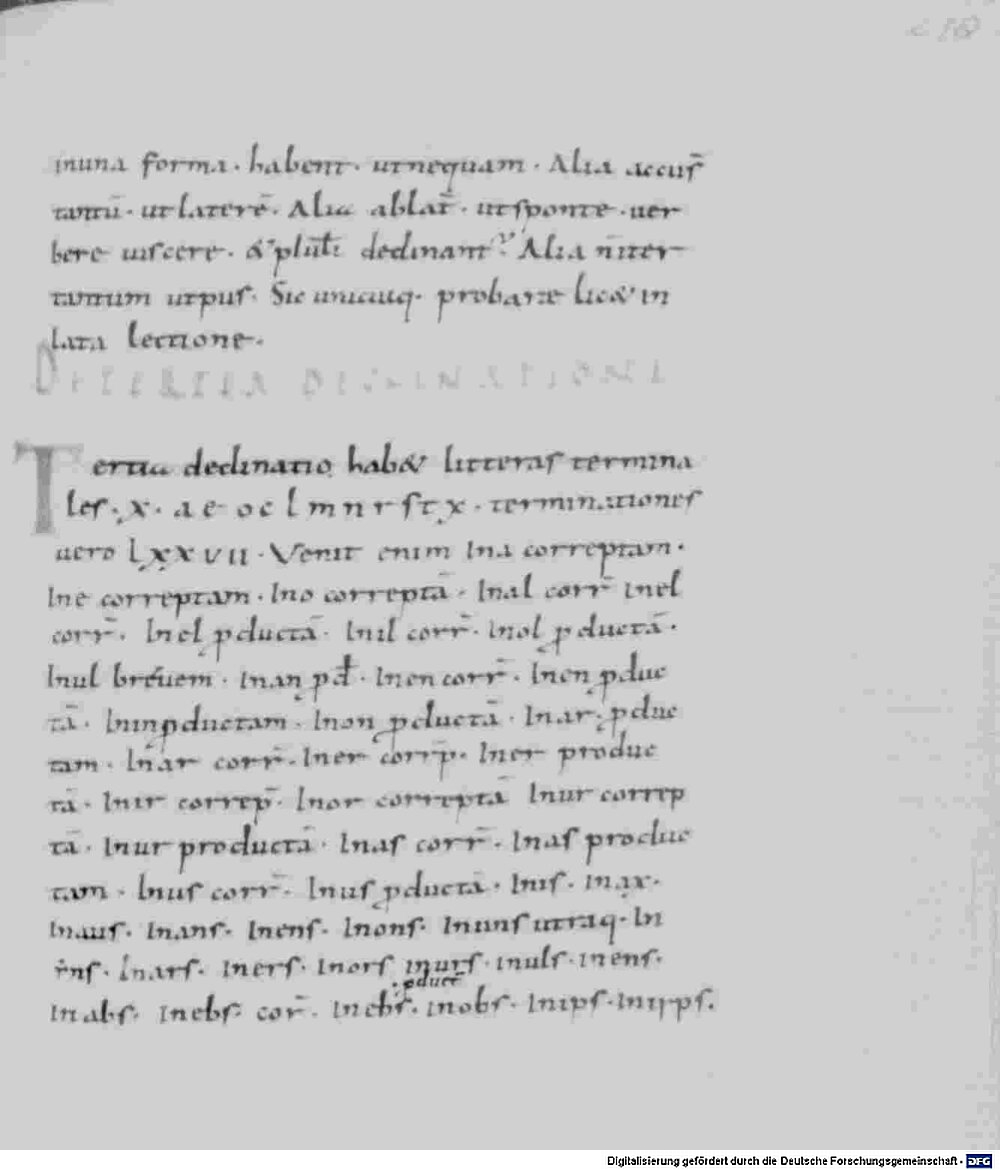 inuna forma · habent · utnequam · Alia accuſ̄
tantū · ut laterē · Alia ablat̄ · utſponte · uer
bere uiſcere · & plul̄i declinant · Alia n̄iter
tantum utpuſ · Sic unicuiq· probare lic& in
lata lectione ·
TERTIA DECLINATIONE
Tertia declinatio hab& litteraſ termina
leſ · x · a e o c l m n r ſ t x · terminationeſ
uero lxxvii · Venit enim Ina correptam ·
Ine correptam · Ino correptā · Inal corr̄ Inel
corr̄ · Inel ꝓductā · Inil corr̄ · Inol ꝓductā ·
Inul breuem · Inan ꝓd̄ · Inen corr̄ · Inen ꝓduc
tā · Ininꝓductam · Inon ꝓductā · Inar ꝓduc
tam · Inar corr̄ · Iner corrp̄ · Iner produc
tā · Inir correp̄ · Inor correptā Inur correp
tā · Inur productā · Inaſ corr̄ · Inaſ produc
tam · Inuſ corr̄ · Inuſ ꝓductā · Iniſ · inax ·
Inauſ · Inanſ · Inenſ · Inonſ · Inunſ utraq · In
r̄nſ · Inarſ · Inerſ · Inorſ inurſ · inulſ · inenſ ·
·ꝓduct̄
Inabſ · Inebſ · cor̄ · Inebſ · inobſ · Inipſ · Inypſ ·
Digitalisierung gefördert durch die Deutsche Forschungsgemeinschaft - DFG